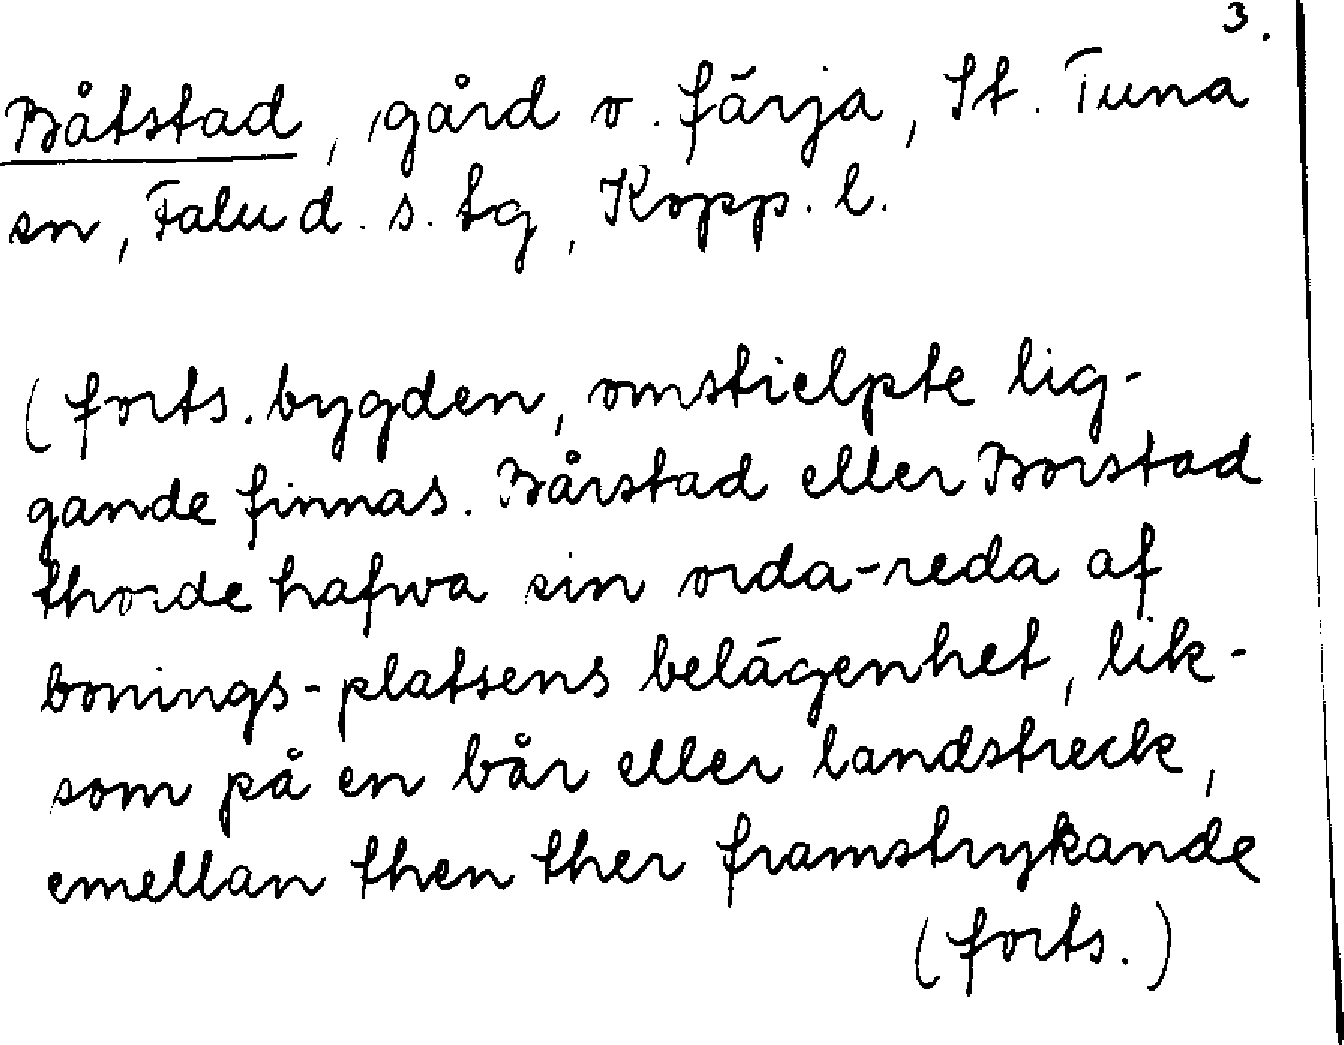 3.
Båtstad, gård o. färja, St. Tuna
sn, Falu d. s. tg, Kopp. l.
(forts. bygden, omstielpte lig-
gande finnas. Bårstad eller Borstad
thorde hafwa sin orda-reda af
bonings-platsens belägenhet, lik-
som på en bår eller landstreck,
emellan then ther framstrykande
(forts.)